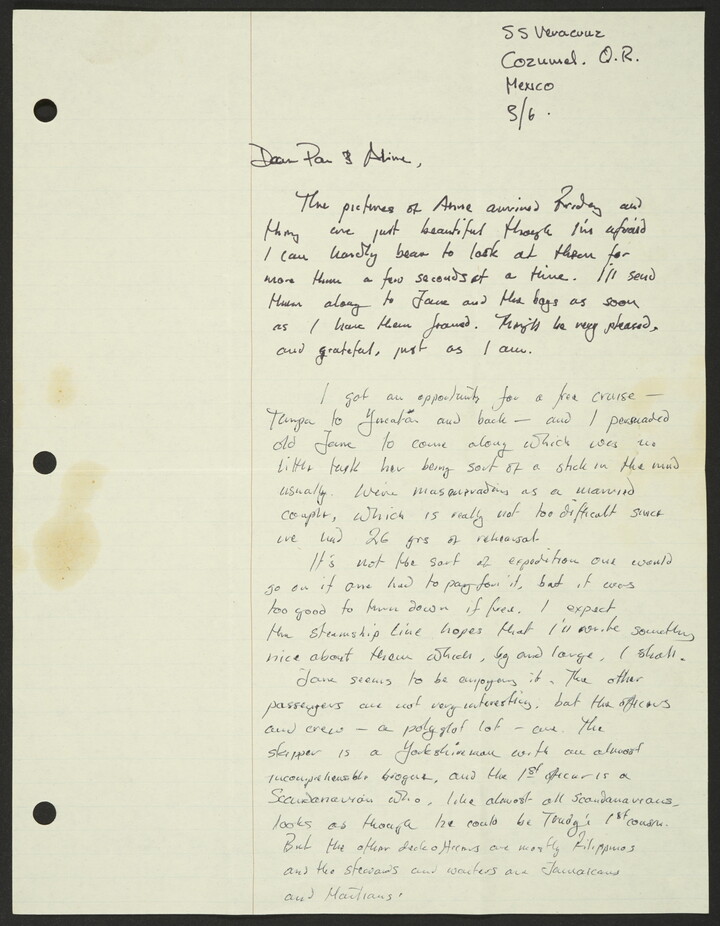 SS Veracruz
Cozumel. Q.R.
Mexico
3/6.
Dear Pan & Aline,
The pictures of Anne arrived Friday and
they are just beautiful though I'm afraid
I can hardly bear to look at them for
more than a few seconds at a time. I'll send
them along to Jane and the boys as soon
as I have them framed. They'll be very pleased,
and grateful, just as I am.
I got an opportunity for a free cruise —
Tampa to Yucatán and back — and I persuaded
old Jane to come along which was no
little task her being sort of a stick in the mud
usually. We're masquerading as a married
couple, which is really not too difficult since
we had 26 yrs of rehearsal.
It's not the sort of expedition one would
go on if one had to pay for it, but it was
too good to turn down if free. I expect
the steamship line hopes that I'll write something
nice about them which, by and large, I shall.
Jane seems to be enjoying it. The other
passengers are not very interesting, but the officers
and crew — a polyglot lot — are. The
skipper is a Yorkshireman with an almost
incomprehensible brogue, and the 1st officer is a
Scandanavian who, like almost all Scandanavians,
looks as though he could be 1st cousin.
But the other deck officers are mostly Filippinos
and the stewards and waiters are Jamaicans
and Haitians.